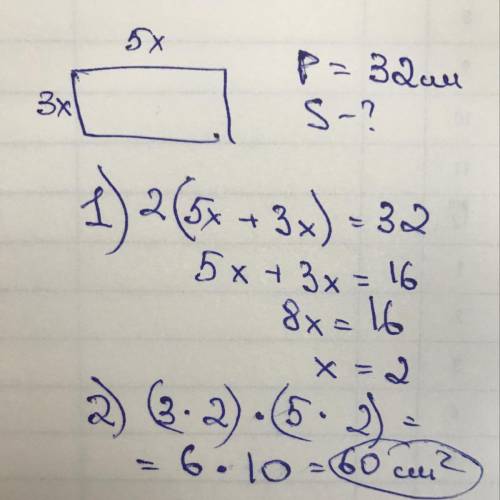 5x
P = 32 см
3x
S - ?
1) 2(5x + 3x) = 32
5x + 3x = 16
8x = 16
x = 2
2) (3 · 2) · (5 · 2) =
= 6 · 10 = 60 см²